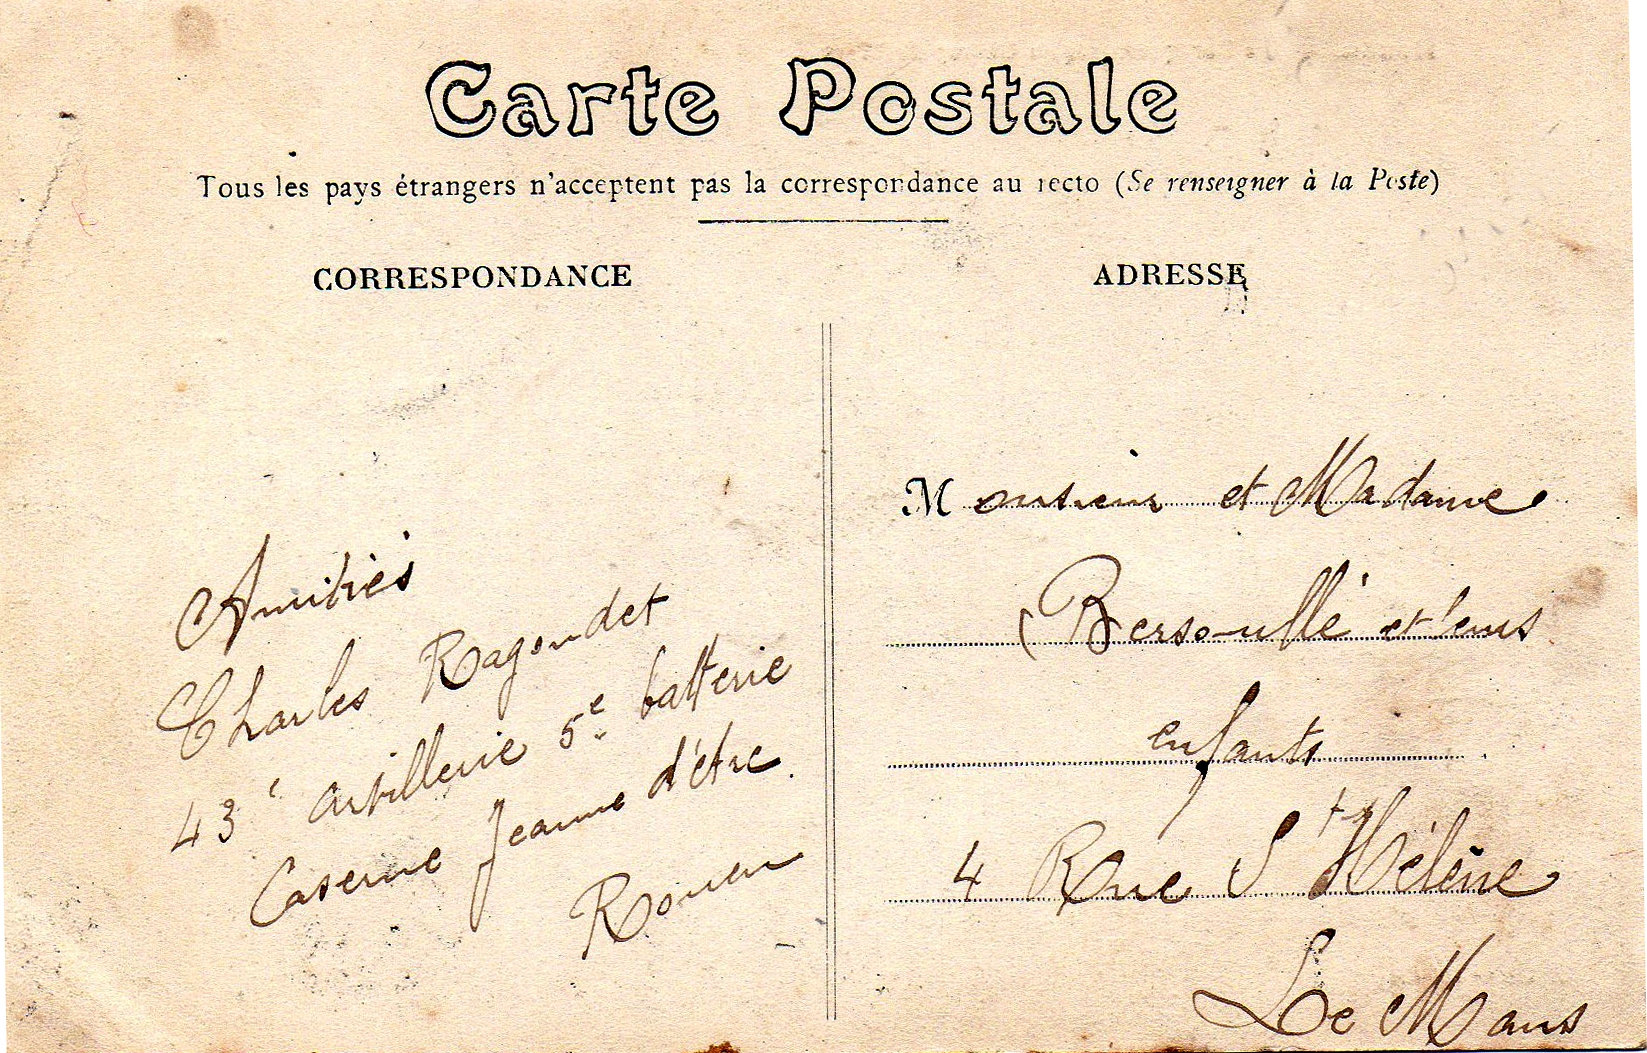 Carte Postale
Tous les pays étrangers n'acceptent pas la correspondance au recto (Se renseigner à la Poste)
CORRESPONDANCE
ADRESSE
Amitiés
Charles Ragondet
43e artillerie 5e batterie
Caserne Jeanne d'étre
Rouen
Monsieur et Madame
Bersoullé et leurs
enfants
4 Rue St Hélène
Le Mans